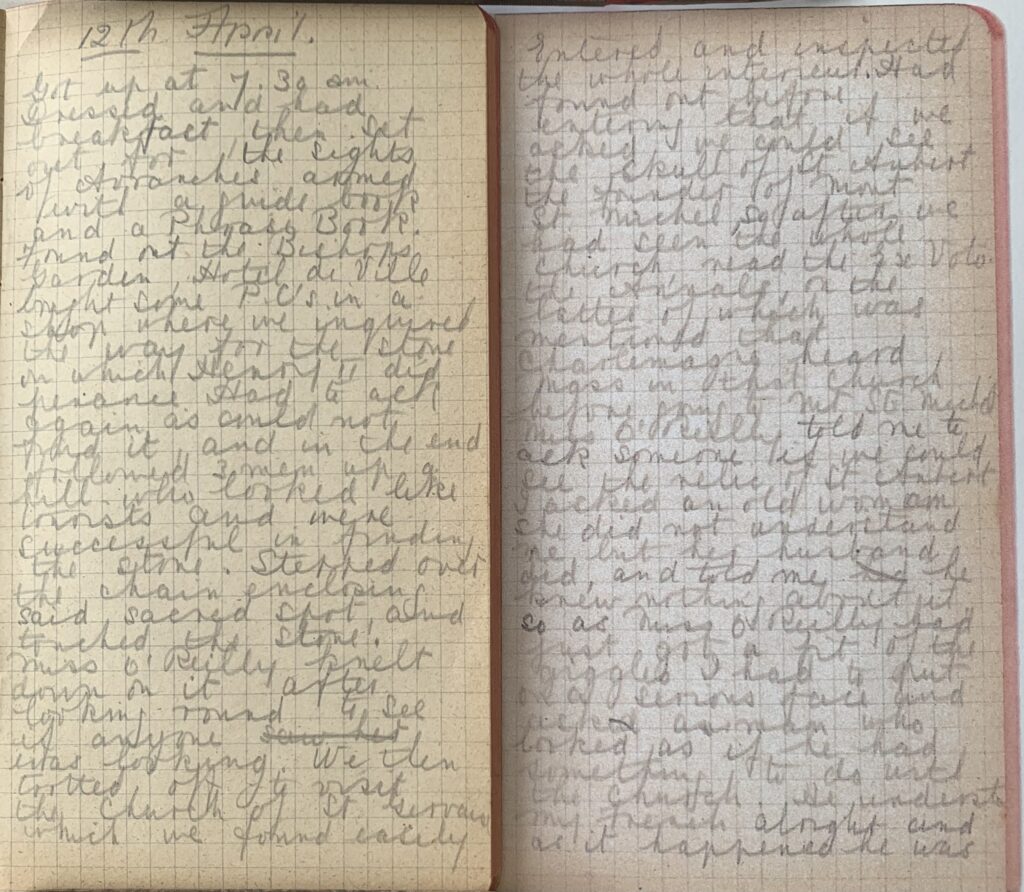 12th April.
Got up at 7.30 am.
Dressed and had
breakfast then set
out for the sights
of Avranches armed
with a guide book
and a Phrase Book.
Found out the Bishops
Garden, Hotel de Ville
bought some P.C's in a
shop where we inquired
the way for the stone
on which Henry II did
penance Had to ask
again as could not
find it, and in the end
followed 3 men up a
hill who looked like
tourists and were
successful in finding
the stone. Stepped over
the chain enclosing
said sacred spot, and
touched the stone.
Miss O'Reilly knelt
down on it after
looking round to see
if anyone saw her
was looking. We then
trotted off to visit
the Church of St Servan
which we found easily
Entered and inspected
the whole interieur. Had
found out before
entering that if we
asked we could see
the skull of St Aubert
the founder of Mont
St Michel so after we
had seen the whole
church, read the Ex Voto
the Annals, on the
latter of which was
mentioned that
Charlemagne heard
mass in that church
before going to Mt St Michel
Miss O'Reilly told me to
ask someone if we could
see the relic of St Aubert
I asked an old woman
she did not understand
me but her husband
did, and told me he
knew nothing about it
so as Miss O'Reilly had
just got a fit of the
giggles I had to put
on a serious face and
a man who
looked as if he had
something to do with
the church. He underst
my French alright and
as it happened he was